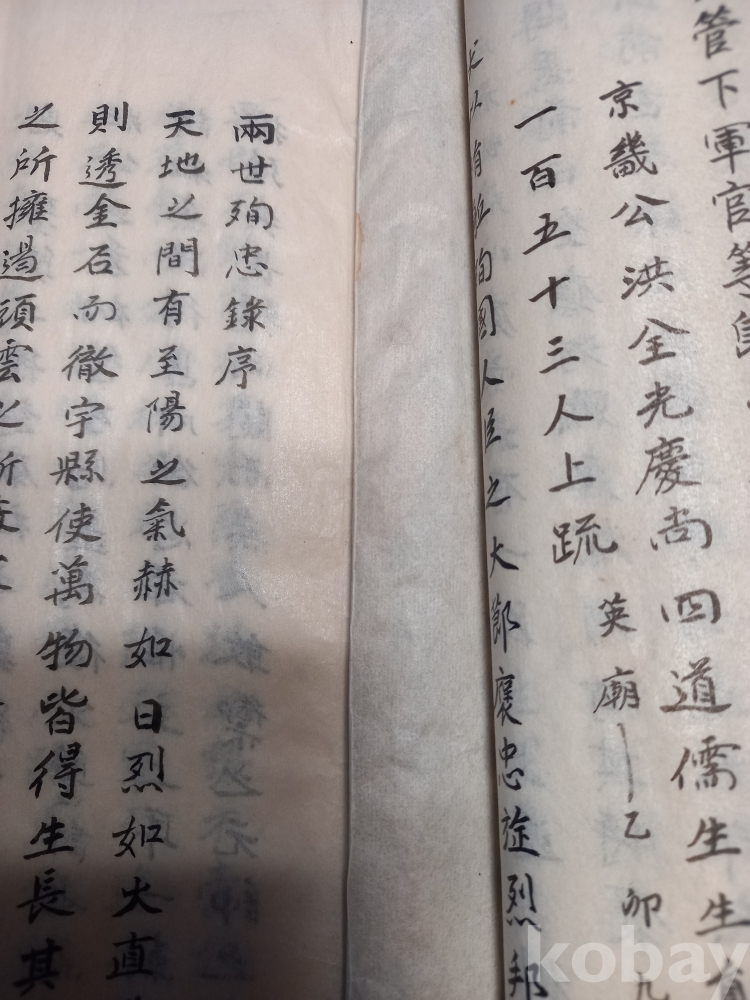 管下軍官等
京畿公洪全光慶尚四道儒生生
一百五十三人上疏 英廟 乙卯九
殉國人臣之大節褒忠旌烈邦
兩世殉忠錄序
天地之間有至陽之氣赫如日烈如火直
則透金石而徹宇縣使萬物皆得生長其
之所擁遏頭雲之所
kobay